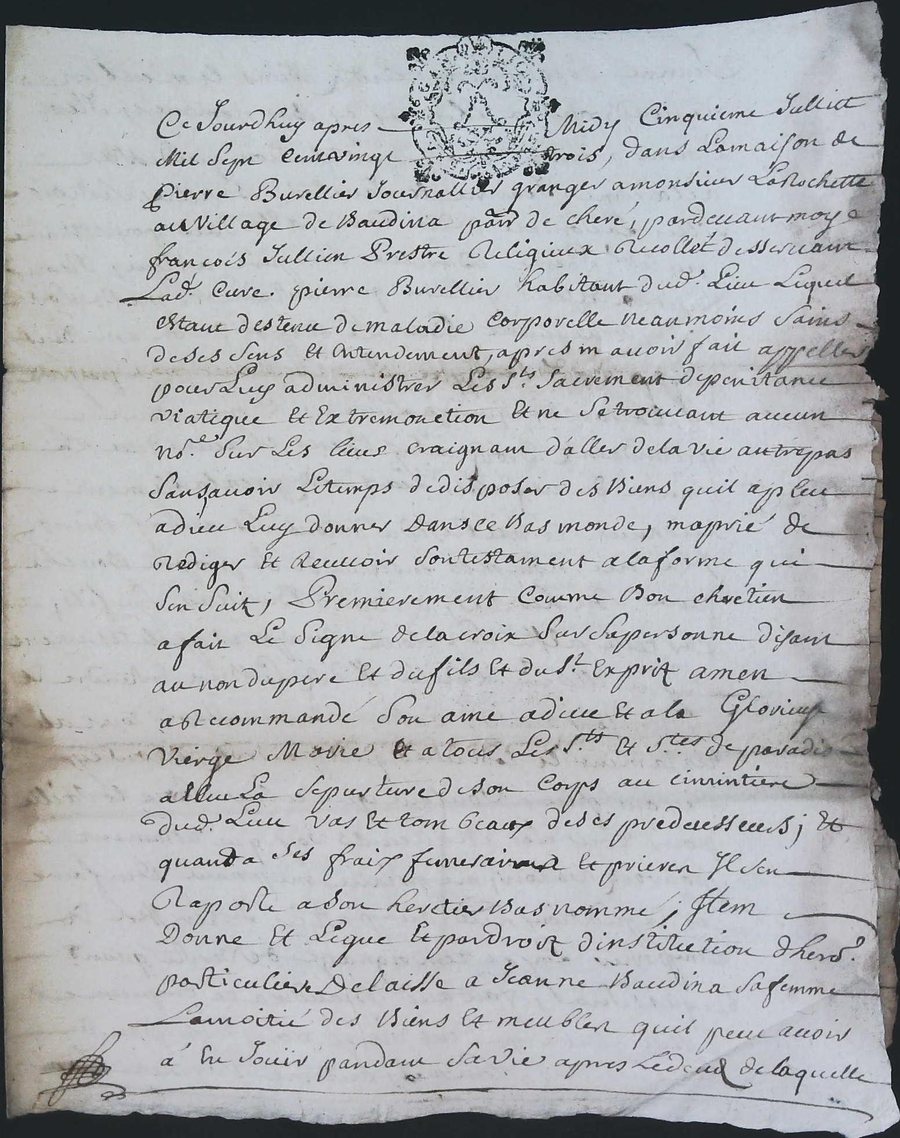 Ce Jourdhuy apres Midy Cinquieme Julliet
Mil Sept Cent vingt trois, dans Lamaison de
pierre Burellier Journallier granger a monsieur LaRochette
au Village de Baudina parr de cheré, pardevant moy
francois Jullien Prestre Religieux Recollet desservant
Lad. Cure. pierre Burellier habitant dud. Lieu Lequel
Estant destenu de maladie Corporelle neaumoins Sains
de ses Sens Et Entendement, apres m avoir fait appeller
pour Luy administrer Les Sts. Sacrement de penitance
Viatique Et Extremonction Et ne Se trouvant aucun
nore. Sur Les lieux craignant d'aller de la vie autrepas
Sans avoir Letemps de disposer des Biens quil a pleu
a dieu Luy donner dans ce Bas monde, ma prié de
Rediger Et Recevoir Sontestament a la forme qui
Sen Suit, Premierement Comme Bon chretien
a fait Le Signe de la croix Sur Sa personne disant
au non du pere Et du fils Et du St. Esprit amen
a Recommandé Son ame a dieu Et a la Glorieuse
Vierge Marie Et a tous Les Sts. Et Stes. de paradis
a Elleu La Sepurture de son Corps au cimintiere
dud. Lieu vas Et tombeaux de ses predecesseurs; Et
quand a ses fraix funeraires Et prieres Il sen
Raporte a Son heretier Bas nommé; Item
Donne Et Legue Et par droit d'institution dhered.
particuliere Delaisse a Jeanne Baudina Sa femme
La moitié des Biens Et meubles quil peut avoir
á En Jouir pandant Sa vie apres Le deces de laquelle